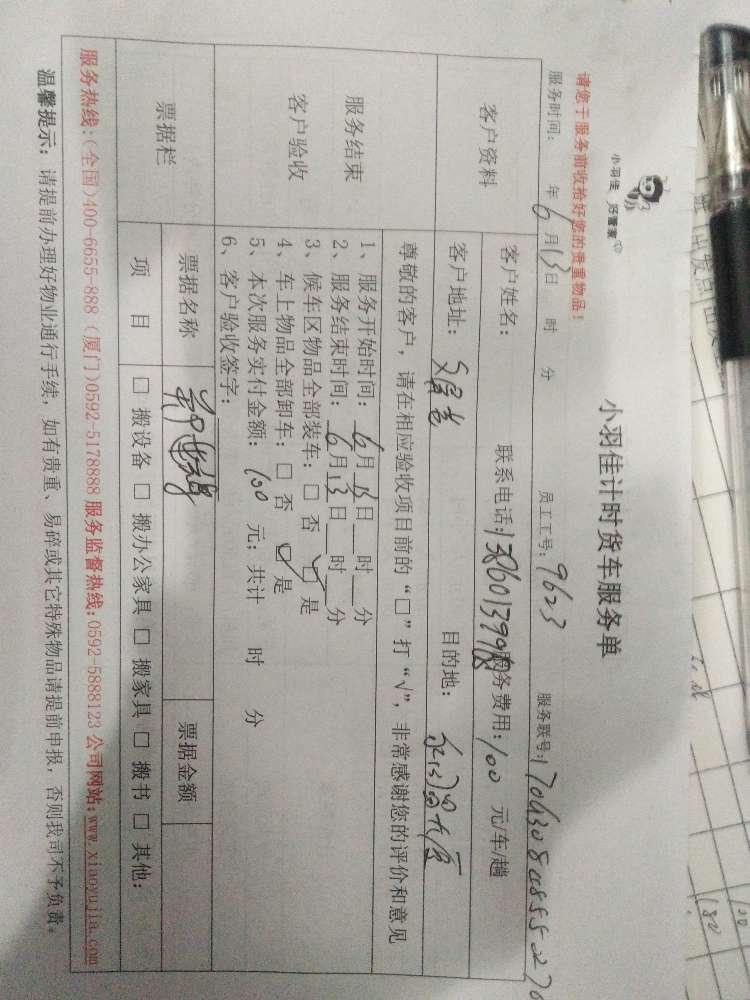 小羽佳 好管家
小羽佳计时货车服务单
请您于服务前收拾好您的贵重物品！
服务时间： 年 6 月 13 日 时 分 员工工号：9623 服务联号：
客户资料
客户姓名： 联系电话：服务费用：100 元/车/趟
客户地址： 目的地：
服务结束
客户验收
尊敬的客户，请在相应验收项目前的“□”打“√”，非常感谢您的评价和意见
1、服务开始时间： 6 月 13 日 时 分
2、服务结束时间： 6 月 13 日 时 分
3、候车区物品全部装车：□ 否 □ 是
4、车上物品全部卸车：□ 否 □ 是
5、本次服务实付金额： 100 元；共计 时 分
6、客户验收签字：
票据栏
票据名称 票据金额
项 目 □ 搬设备 □ 搬办公家具 □ 搬家具 □ 搬书 □ 其他：
服务热线：(全国)400-6655-888 (厦门)0592-5178888 服务监督热线:0592-5888123 公司网站:www.xiaoyujia.com
温馨提示：请提前办理好物业通行手续，如有贵重、易碎或其它特殊物品请提前申报，否则我司不予负责。